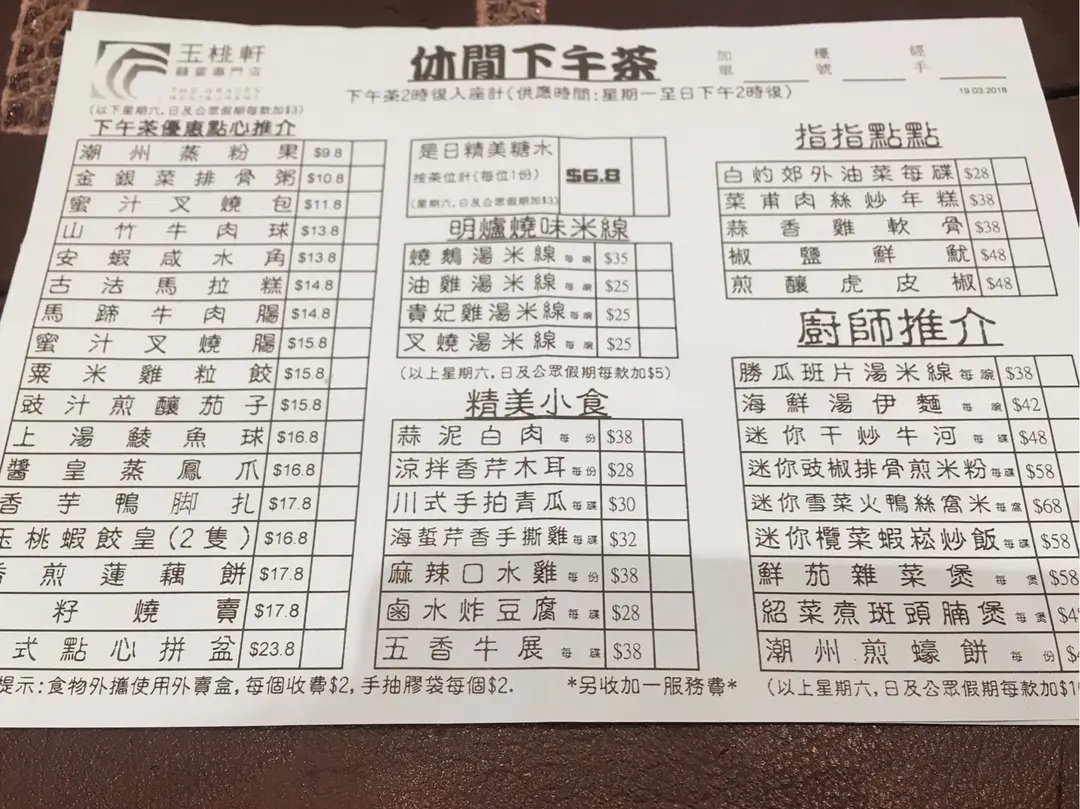 玉桃軒
THE GRACES
RESTAURANT
休閒下午茶
加單
檯號
經手
下午茶2時後入座計(供應時間:星期一至日下午2時後)
19.03.2018
(以下星期六,日及公眾假期每款加$3)
下午茶優惠點心推介
潮州蒸粉果 $9.8
金銀菜排骨粥 $10.8
蜜汁叉燒包 $11.8
山竹牛肉球 $13.8
安蝦咸水角 $13.8
古法馬拉糕 $14.8
馬蹄牛肉腸 $14.8
蜜汁叉燒腸 $15.8
粟米雞粒餃 $15.8
豉汁煎釀茄子 $15.8
上湯鯪魚球 $16.8
醬皇蒸鳳爪 $16.8
香芋鴨脚扎 $17.8
玉桃蝦餃皇(2隻) $16.8
煎蓮藕餅 $17.8
籽燒賣 $17.8
式點心拼盆 $23.8
是日精美糖水 $6.8
按茶位計(每位1份)
(星期六,日及公眾假期加$3)
明爐燒味米線
燒鵝湯米線 每碗 $35
油雞湯米線 每碗 $25
貴妃雞湯米線 每碗 $25
叉燒湯米線 每碗 $25
(以上星期六,日及公眾假期每款加$5)
精美小食
蒜泥白肉 每份 $38
涼拌香芹木耳 每份 $28
川式手拍青瓜 每碟 $30
海蜇芹香手撕雞 每碟 $32
麻辣口水雞 每份 $38
鹵水炸豆腐 每碟 $28
五香牛展 每碟 $38
指指點點
白灼郊外油菜每碟 $28
菜甫肉絲炒年糕 $38
蒜香雞軟骨 $38
椒鹽鮮魷 $48
煎釀虎皮椒 $48
廚師推介
勝瓜班片湯米線 每碗 $38
海鮮湯伊麵 每碗 $42
迷你干炒牛河 每碟 $48
迷你豉椒排骨煎米粉 每碟 $58
迷你雪菜火鴨絲窩米 每窩 $68
迷你欖菜蝦崧炒飯 每碟 $58
鮮茄雜菜煲 每煲 $58
紹菜煮斑頭腩煲 每煲
潮州煎蠔餅 每份
提示:食物外攜使用外賣盒,每個收費$2,手抽膠袋每個$2.
*另收加一服務費*
(以上星期六,日及公眾假期每款加